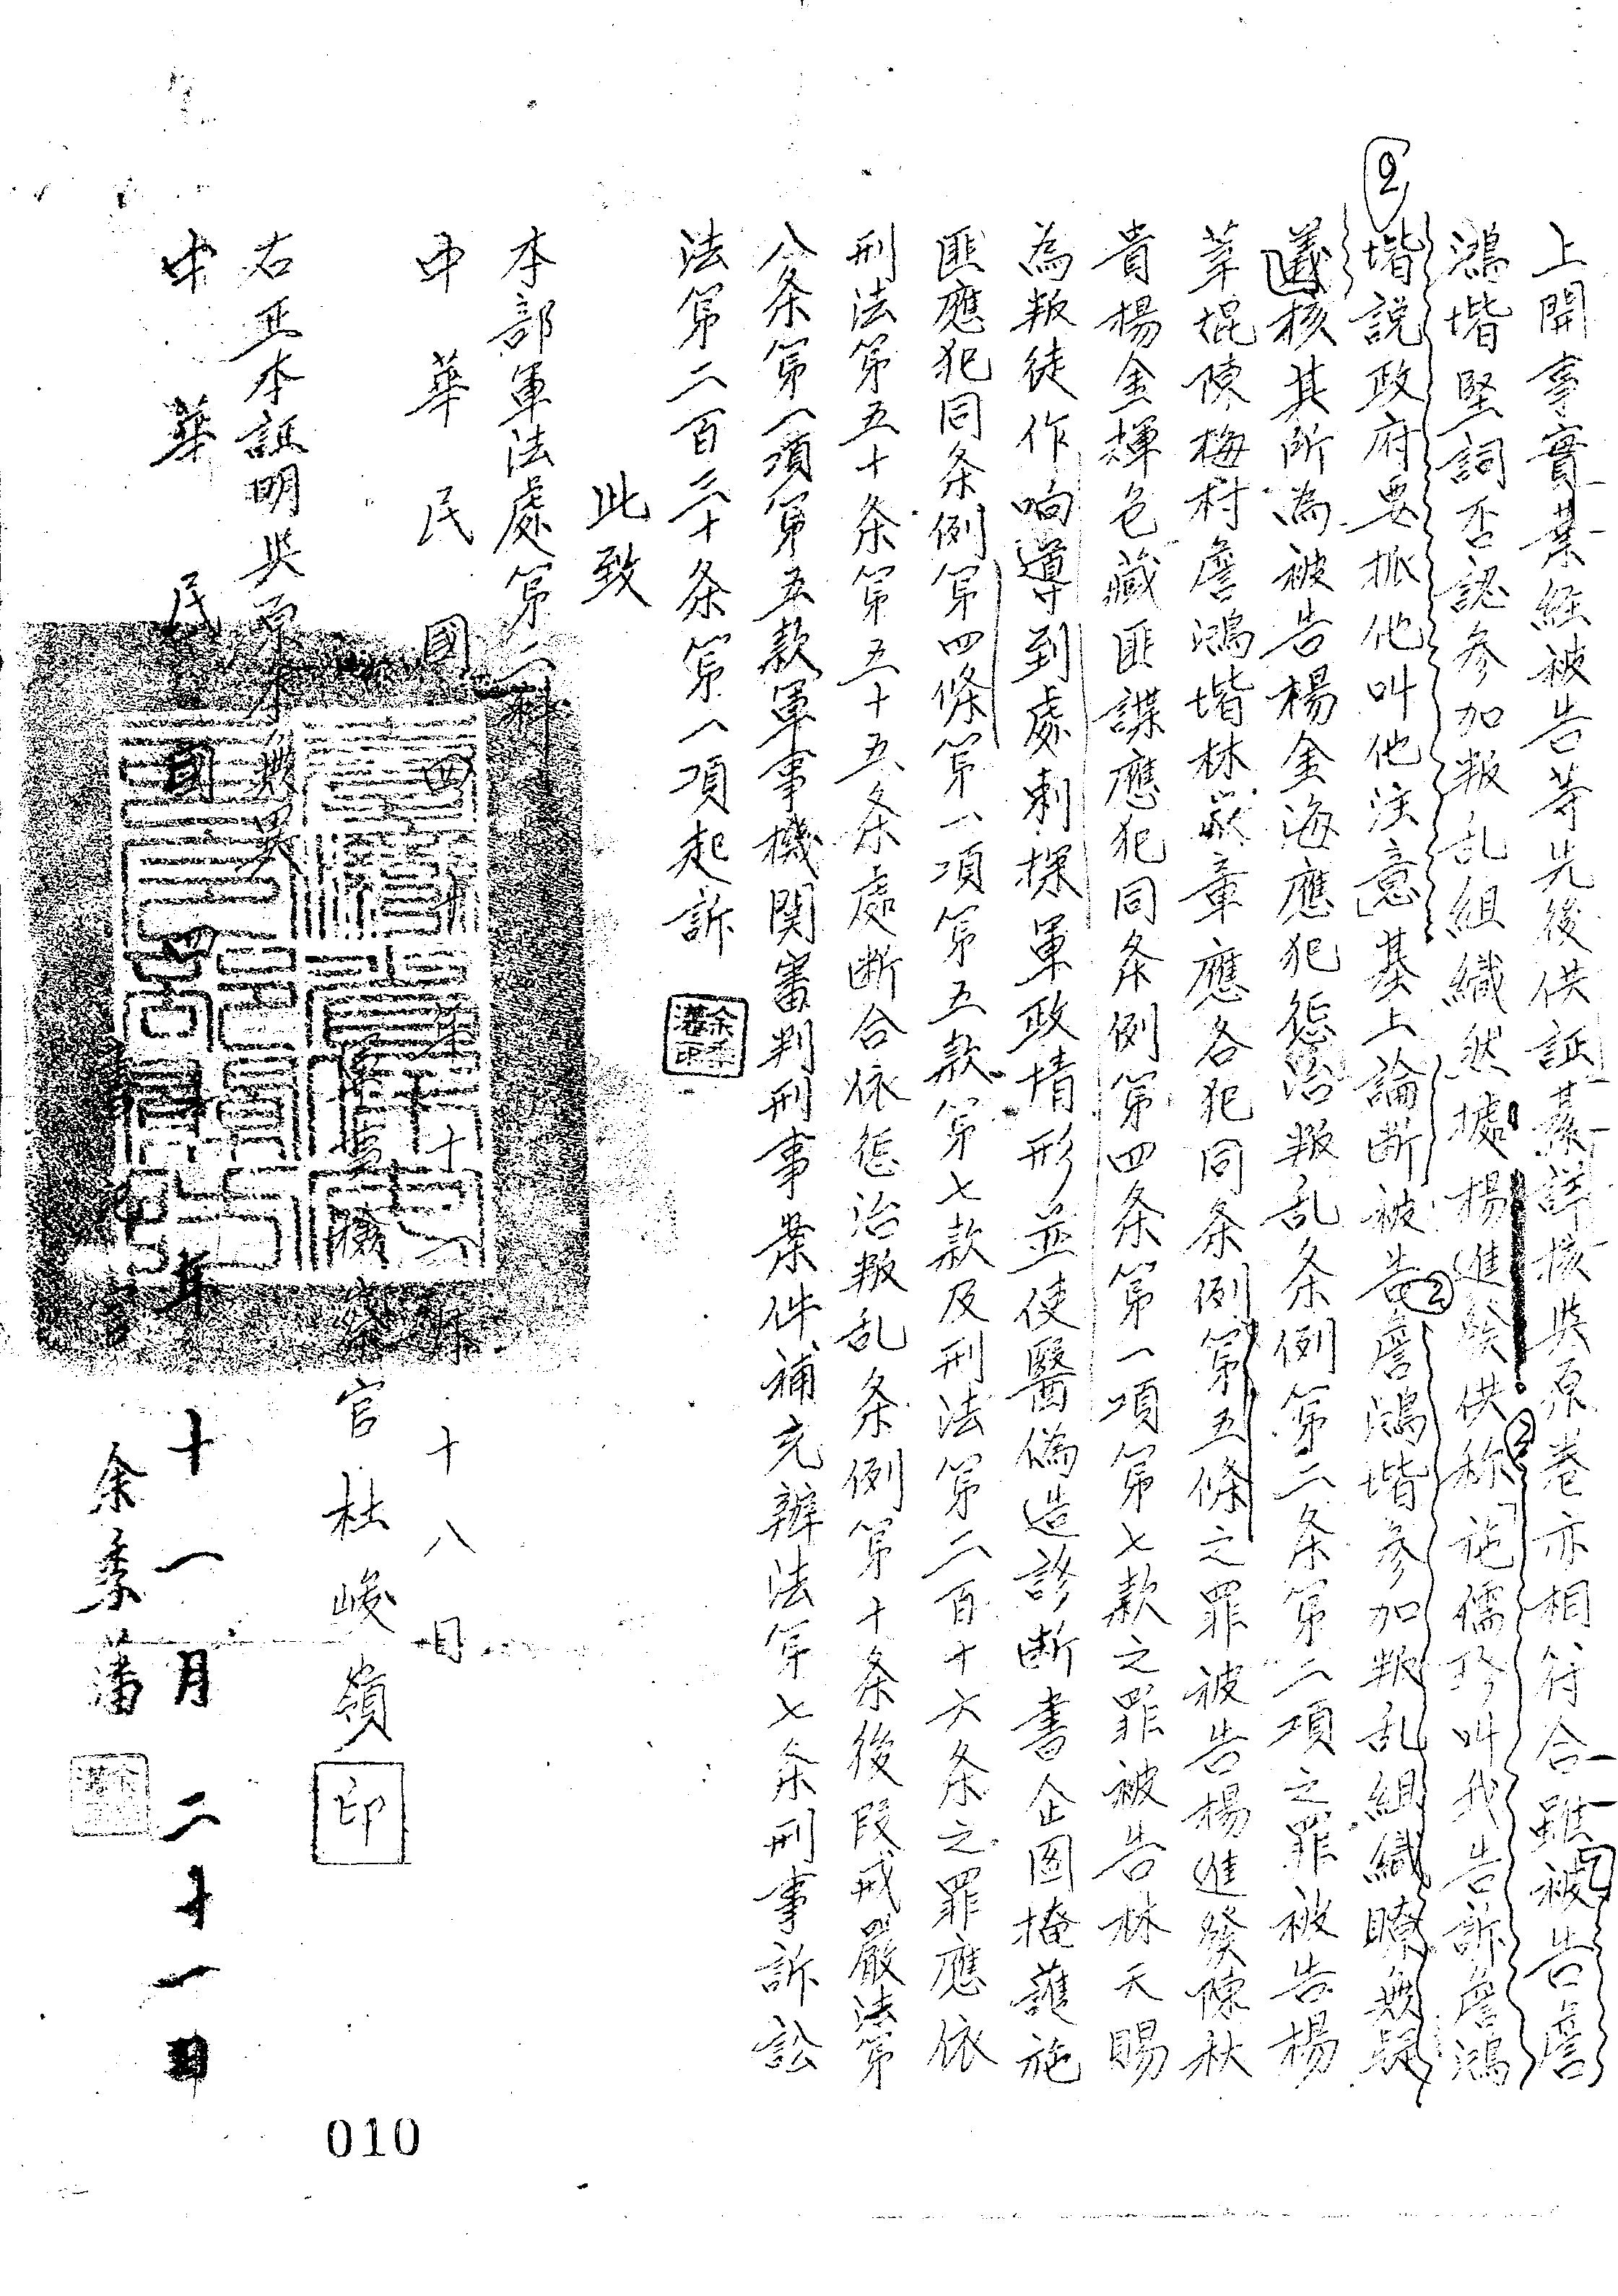 上開事實業經被告等先後供証綦詳核與原卷亦相符合雖被告詹
鴻堦堅詞否認參加叛乱組織然據楊進發供称「施儒珍叫我告訴詹鴻
堦説政府要抓他叫他注意」基上論断被告詹鴻堦參加叛乱組織瞭無疑
義核其所為被告楊金海應犯懲治叛乱条例第二条第二項之罪被告楊
葦焜陳梅村詹鴻堦林章應各犯同条例第五條之罪被告楊進發陳秋
貴楊金輝包藏匪諜應犯同条例第四条第一項第七款之罪被告林天賜
為叛徒作响導到處刺探軍政情形並使醫偽造診断書企图掩護施
匪應犯同条例第四條第一項第五款第七款及刑法第二百十六条之罪應依
刑法第五十条第五十五条處断合依懲治叛乱条例第十条後段戒嚴法第
八条第一項第五款軍事機関審判刑事案件補充辦法第七条刑事訴訟
法第二百三十条第一項起訴
此致
本部軍法處第二科
中華民國四十年十一月十八日
軍事檢察官杜峻嶺 印
右正本証明與原本無異
中華民國四十年十一月二十一日
余秉藩
②
②
②
010